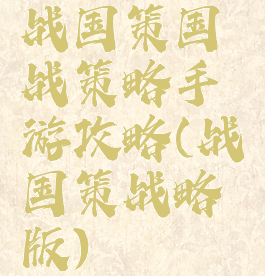 战国策国
战策略手
游攻略(战
国策战略
版)